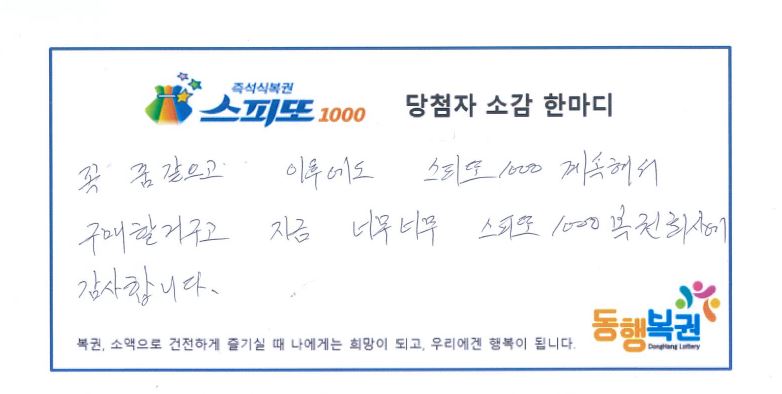 즉석식복권
스피또 1000 당첨자 소감 한마디
꼭 꿈같으고 이후에도 스피또 1000 계속해서
구매할거구고 지금 너무너무 스피또 1000 복권회사에
감사합니다.
동행복권
DongHang Lottery
복권, 소액으로 건전하게 즐기실 때 나에게는 희망이 되고, 우리에겐 행복이 됩니다.